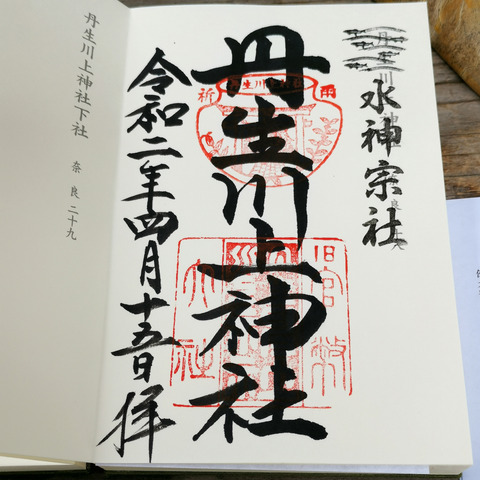 水神宗社
丹生川上神社
令和二年四月十五日拝
丹生川上神社下社
奈良二十九
旧官幣
大社